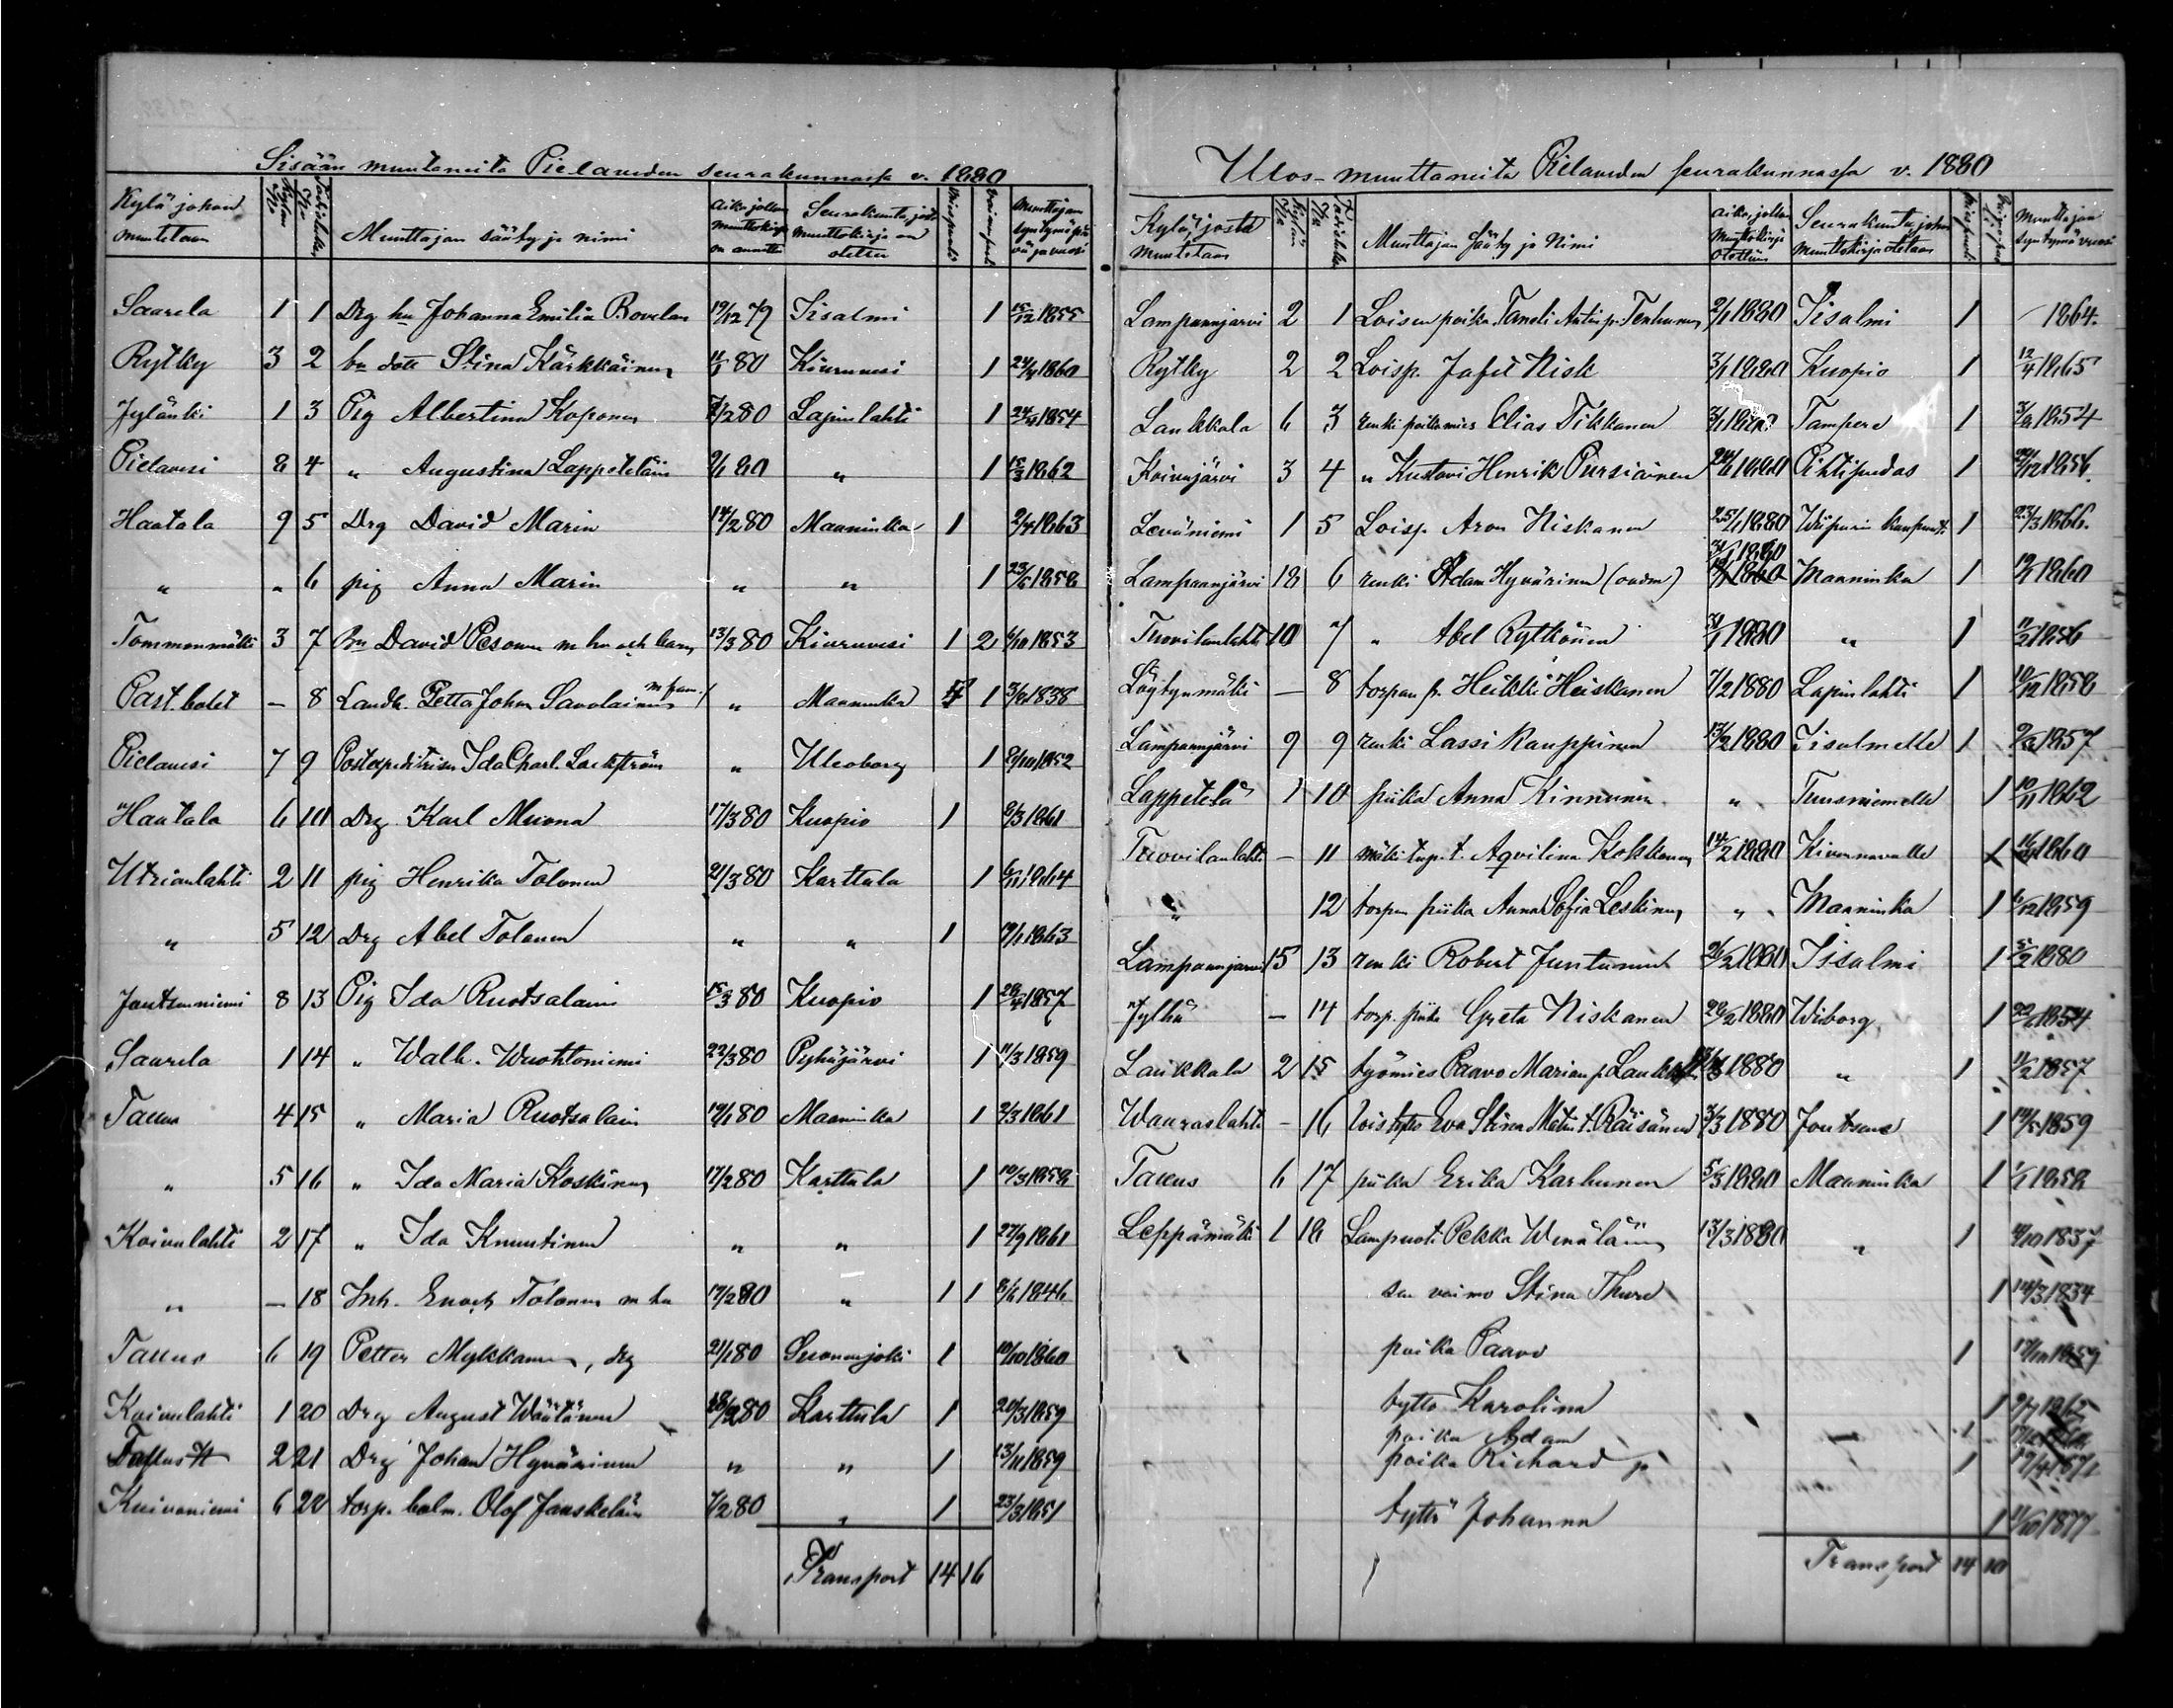 Sisään muuttaneita Pielaveden seurakunnassa v. 1880
Kylä johon muutetaan | Kylän No | Todistuksen No | Muuttajan sääty ja nimi | Aika jolloin muuttokirja on annettu | Seurakunta, josta muuttokirja on otettu | Miespuoli | Vaimopuoli | Muuttajan syntymä päivä ja vuosi
Saarela 1 1 Drg hu Johanna Emilia Rovelan 19/12 79 Iisalmi 1 15/12 1855
Rytky 3 2 bn dott Stina Kärkkäinen 80 Kiuruvesi 1 1860
Jylänki 1 3 Pig Albertina Koponen /2 80 Lapinlahti 1 1854
Pielavesi 8 4 " Augustina Lappeteläin 80 " 1 15/3 1862
Hautala 9 5 Drg David Marin 14/2 80 Maaninka 1 2/4 1863
" " 6 pig Anna Marin " " 1 23/5 1858
Tommonmäki 3 7 Bn David Pesonen m hu och barn 13/3 80 Kiuruvesi 1 2 /10 1853
Part. bolet – 8 Landb. Petter Johan Savolainen m fam. " Maaninka 1 1838
Pielavesi 7 9 Postexpeditrisen Ida Charl. Lackström " Uleoborg 1 /10 1852
Hautala 6 10 Drg Karl Muona 17/3 80 Kuopio 1 8/3 1861
Utrianlahti 2 11 pig Henrika Tolonen 21/3 80 Karttula 1 6/11 1864
" 5 12 Drg Abel Tolonen " " 1 19/1 1863
Joutsenniemi 8 13 Pig Ida Ruotsalain 15/3 80 Kuopio 1 28/4 1857
Saarela 1 14 " Walb. Wuohtoniemi 22/3 80 Pyhäjärvi 1 11/3 1859
Taurus 4 15 " Maria Ruotsalain 19/1 80 Maaninka 1 2/3 1861
" 5 16 " Ida Maria Koskinen 17/2 80 Karttula 1 10/3 1858
Koivulahti 2 17 " Ida Knuutinen " " 1 27/9 1861
" – 18 Inh. Enoch Tolonen m hu 17/2 80 " 1 1 8/6 1846
Taurus 6 19 Petter Mykkänen, drg 21/1 80 Suonenjoki 1 10/10 1860
Koivulahti 1 20 Drg August Wäätänen 80 Karttula 1 20/3 1859
2 21 Drg Johan Hyvärinen " " 1 13/11 1859
Kuivaniemi 6 22 torp. bolm. Olof Jauskeläin 7/2 80 " 1 23/3 1851
Transport 14 16
Ulos-muuttaneita Pielaveden seurakunnassa v. 1880
Kylä, josta muutetaan | Kylän No | Todistuksen No | Muuttajan Sääty ja Nimi | Aika, jolloin Muuttokirja otettiin | Seurakunta, johon muuttokirja otetaan | Miespuoli | Vaimopuoli | Muuttajan syntymä vuosi
Lampaanjärvi 2 1 Loisen poika Taneli Antin p. Tenhunen 2/1 1880 Iisalmi 1 1864.
Rytky 2 2 Loisp. Jafet Nisk 3/1 1880 Kuopio 1 12/4 1865
Laukkala 6 3 renki poikamies Elias Tikkanen 3/1 1880 Tampere 1 1854
Koivujärvi 3 4 " Kustavi Henrik Pursiainen 24/1 1880 Pihtipudas 1 /12 1856.
Leväniemi 1 5 Loisp. Aron Niskanen 25/1 1880 Wiipurin kaupunki 1 23/3 1866.
Lampaanjärvi 18 6 renki Adam Hyvärinen 31/1 1880 Maaninka 1 1860
Tuovilanlahti 10 7 " Abel Rytkönen 31/1 1880 " 1 1856
Löytynmäki – 8 torpan p. Heikki Heiskanen 7/2 1880 Lapinlahti 1 10/12 1858
Lampaanjärvi 9 9 renki Lassi Kauppinen 13/2 1880 Iisalmelle 1 1857
Lappetelä 1 10 piika Anna Kinnunen " Tuusniemelle 1 10/11 1862
Tuovilanlahti – 11 mäki tup. t. Aqvilina Kokkonen 14/2 1880 Kiuruvedelle 1 1860
" 12 torpan piika Anna Sofia Leskinen " Maaninka 1 /12 1859
Lampaanjärvi 15 13 renki Robert Juntunen 26/2 1880 Iisalmi 1 5/2 1880
Jylhä – 14 torp. piika Greta Niskanen 28/2 1880 Wiborg 1 1854
Laukkala 2 15 työmies Paavo Marian p. Laukka /3 1880 " 1 11/2 1857
Waaraslahti – 16 lois tyttö Eva Stina Matin t. Räisänen 3/3 1880 Joutsens 1 14/5 1859
Taurus 6 17 piika Erika Karhunen 5/3 1880 Maaninka 1 1/1 1858
Leppämäki 1 18 Lampuoti Pekka Wenäläinen 13/3 1880 " 1 /10 1837
sen vaimo Stina Thure 1 14/3 1834
" poika Paavo 1 /10 1859
tyttö Karolina 1
poika Adam 1
poika Richard p 1
tyttö Johanna 1 11/10 1877
Transport 14 10